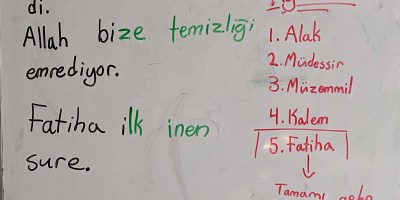 di.
Allah bize temizliği
emrediyor.
Fatiha ilk inen
sure.
1. Alak
2. Müdessir
3. Müzemmil
4. Kalem
5. Fatiha
Tamamı